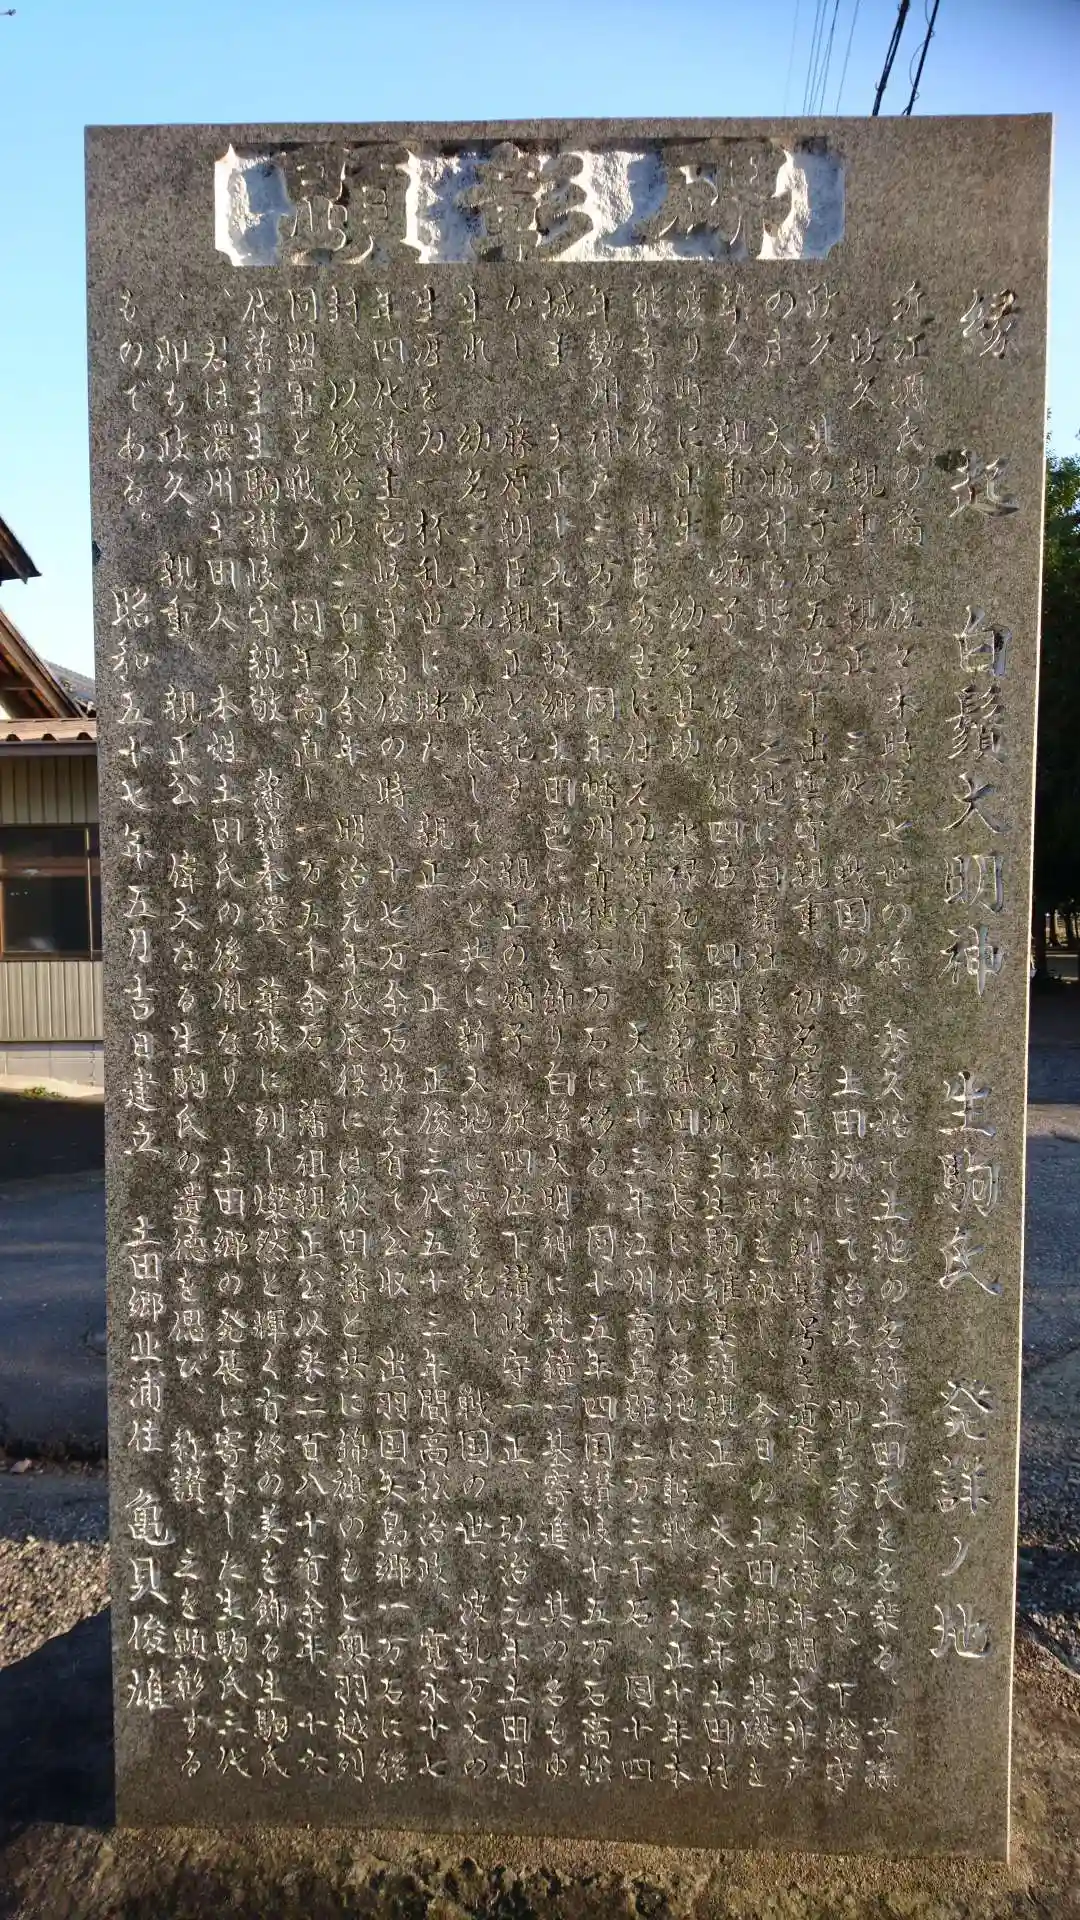 顕彰碑
縁起 白鬚大明神 生駒氏 発詳ノ地
近江源氏の裔 佐々木時信七世の孫、秀久始て土地の名称土田氏を名乗る、子孫
政久、親重、親正、三代、戦国の世、土田城にて治政、即ち秀久の子、下総守
政久 其の子従五位下出雲守親重 初名信正後に剃髪号を道寿 永禄年間大井戸
の庄 大脇村宮野より之地に白鬚社を遷宮 社殿を献じ、今日の土田郷の基礎を
築く 親重の嫡子、後の従四位 四国高松城主生駒雅楽頭親正、大永六年土田村
渡り町に出生、幼名甚助、永禄九年従弟織田信長に従い各地に転戦 天正十年本
能寺変後 豊臣秀吉に仕え功績有り、天正十三年江州高島郡二万三千石、同十四
年勢州神戸三万石、同年幡州赤穂六万石に移る、同十五年四国讃岐十五万石高松
城主、天正十九年故郷土田邑に錦を飾り白鬚大明神に梵鐘一基寄進、其の名もゆ
かし、藤原朝臣親正と記す、親正の嫡子、従四位下讃岐守一正、弘治元年土田村
生れ、幼名三吉丸、成長して父と共に新天地に夢を託し、戦国の世、波乱万丈の
生涯を力一杯乱世に賭た、親正、一正、正俊三代五十三年間高松治政、寛永十七
年四代藩主壱岐守高俊の時、十七万余石故え有て公収、出羽国矢島郷一万石に移
封、以後治政二百有余年、明治元年戊辰役には秋田藩と共に錦旗のもと奥羽越列
同盟軍と戦う、同年高直し一万五千余石、藩祖親正公以来二百八十有余年、十六
代藩主生駒讃岐守親敬、藩籍奉還、華族に列し燦然と輝く有終の美を飾る生駒氏
、君は濃州土田人、本姓土田氏の後胤なり、土田郷の発展に寄与した生駒氏三代
、即ち政久、親重、親正公、偉大なる生駒氏の遺徳を偲び、称讃、之を顕彰する
ものである。 昭和五十七年五月吉日建立 土田郷止浦住 亀貝俊雄